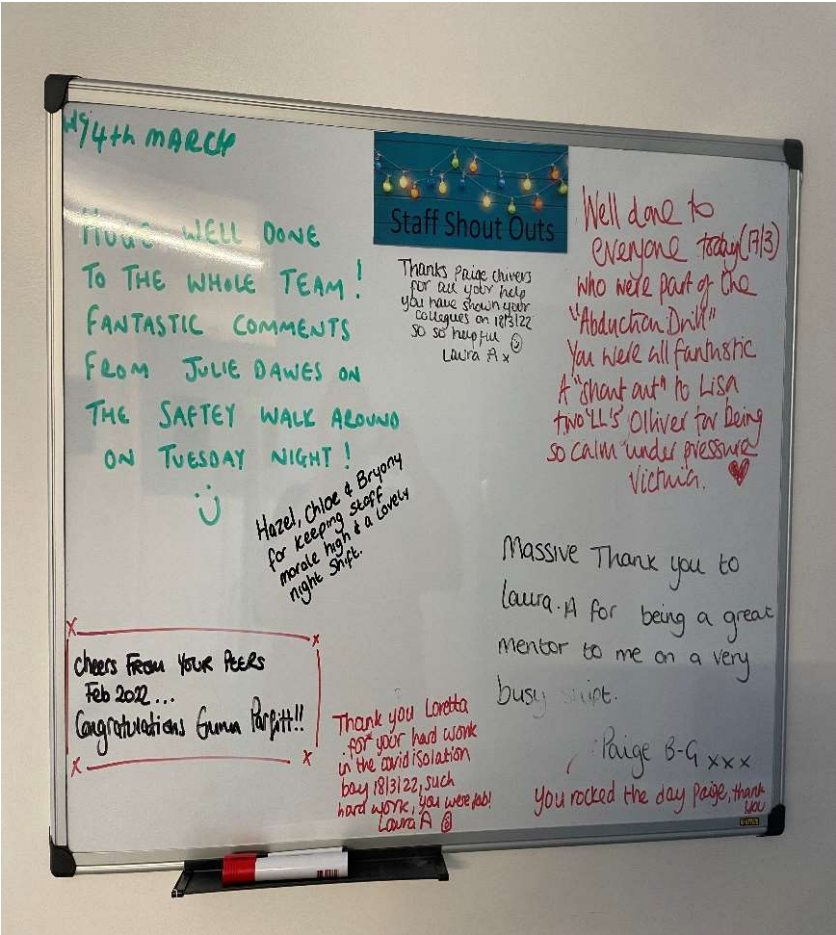 W/C 14th MARCH
HUGE WELL DONE
TO THE WHOLE TEAM!
FANTASTIC COMMENTS
FROM JULIE DAWES ON
THE SAFTEY WALK AROUND
ON TUESDAY NIGHT!
Staff Shout Outs
Thanks Paige Chivers
for all your help
you have shown your
collegues on 18/3/22
so so helpful
Laura A x
Well done to
everyone today (17/3)
who were part of the
"Abduction Drill"
You were all fantastic
A "shout out" to Lisa
two "LL'S" Olliver for being
so calm under pressure
Victoria.
Hazel, Chloe & Bryony
for keeping staff
morale high & a lovely
night shift.
Massive Thank you to
Laura.A for being a great
mentor to me on a very
busy shift.
Paige B-G xxx
you rocked the day Paige, thank
you
Cheers From Your Peers
Feb 2022...
Congratulations Emma Parfitt!!
Thank you Loretta
for your hard work
in the covid isolation
bay 18/3/22, such
hard work, you were fab!
Laura A